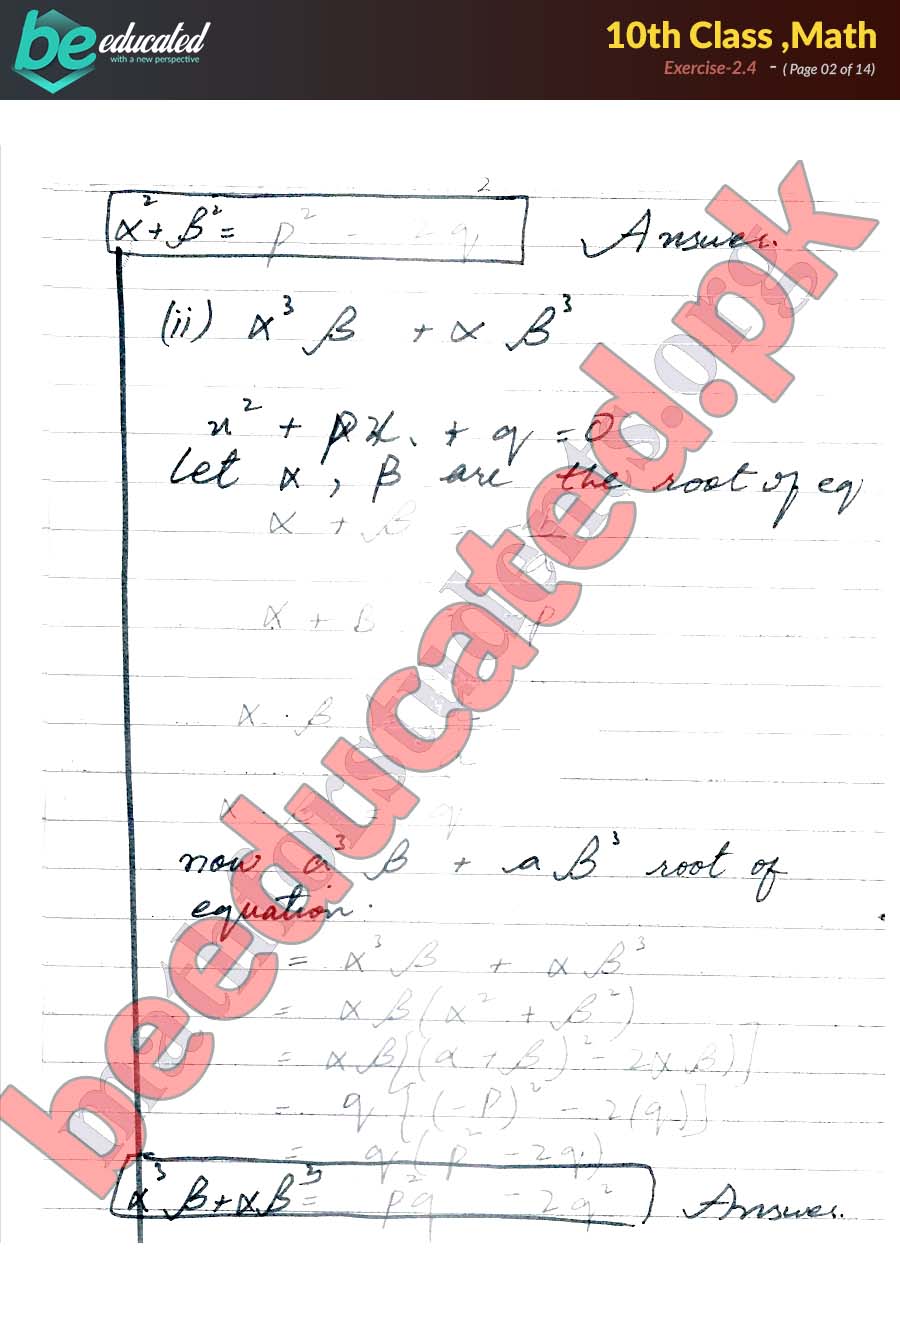 be educated
with a new perspective
10th Class ,Math
Exercise-2.4 - ( Page 02 of 14)
α² + β² = p² - 2q Answer.
(ii) α³ β + α β³
x² + px + q = 0
Let α , β are the root of eq
α + β =
α + β p
α . β =
= q
now a³ β + a β³ root of
equation.
= α³ β + α β³
= α β (α² + β²)
= α β [(α + β)² - 2 α β)]
= q [(-p)² - 2(q)]
= q (p² - 2q)
α³ β + α β³ = p²q - 2q² Answer.
beeducated.pk